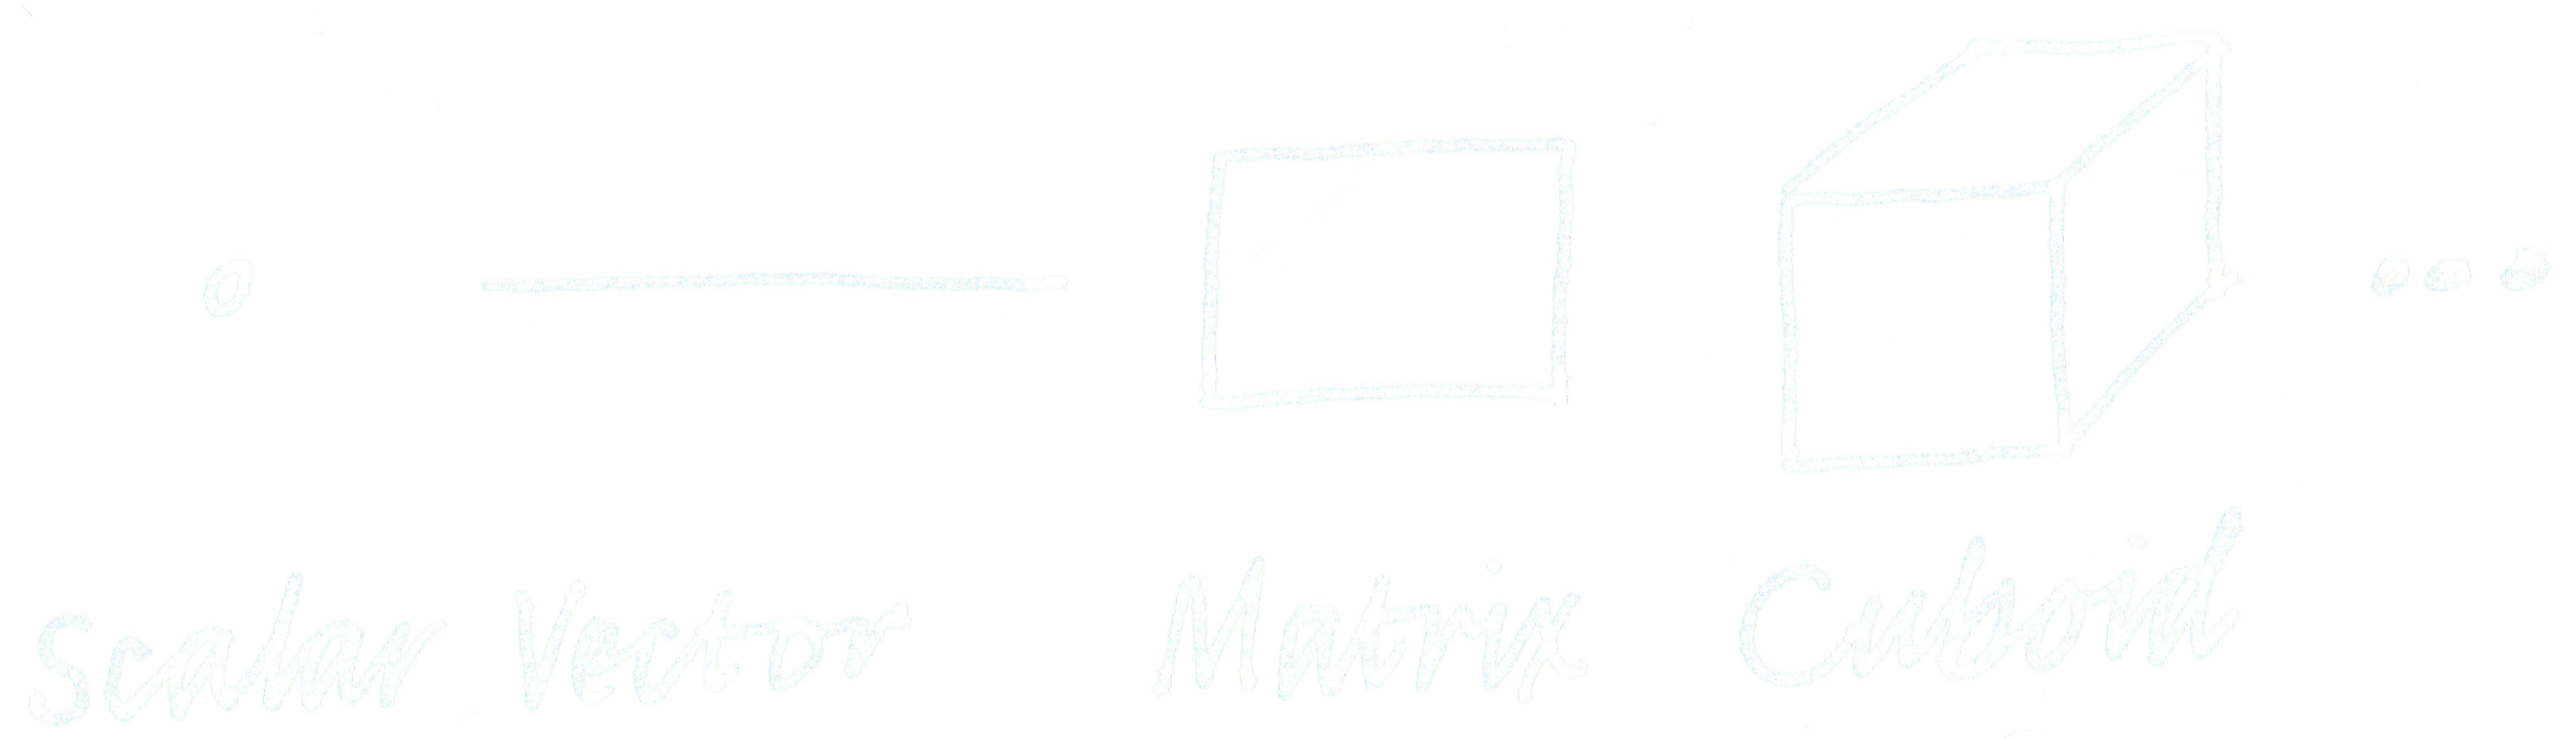 Scalar Vector Matrix Cuboid